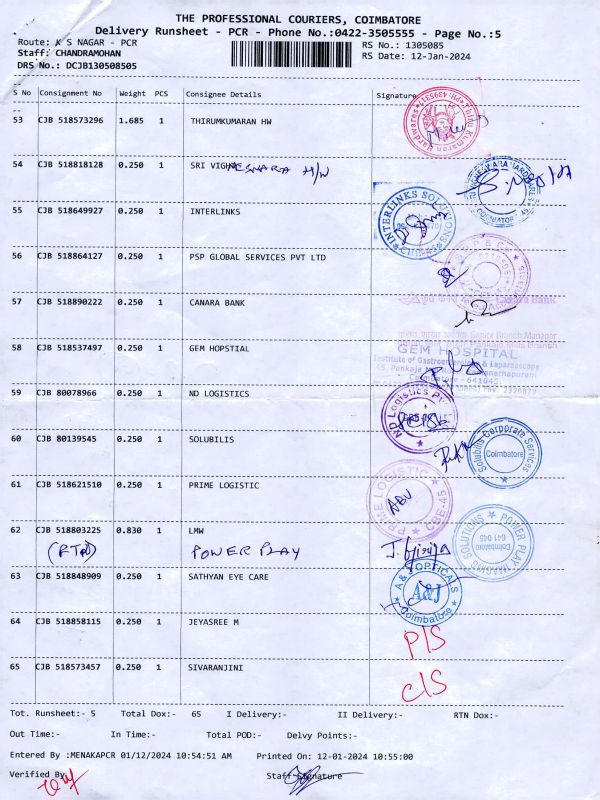 THE PROFESSIONAL COURIERS, COIMBATORE
Delivery Runsheet - PCR - Phone No.:0422-3505555 - Page No.:5
Route: K S NAGAR - PCR
RS No.: 1305085
Staff: CHANDRAMOHAN
RS Date: 12-Jan-2024
DRS No.: DCJB130508505
S No Consignment No Weight PCS Consignee Details Signature
53 CJB 518573296 1.685 1 THIRUMKUMARAN HW
54 CJB 518818128 0.250 1 SRI VIGHNESWARA H/W
55 CJB 518649927 0.250 1 INTERLINKS
INTERLINKS SOLUTIONS
56 CJB 518864127 0.250 1 PSP GLOBAL SERVICES PVT LTD
57 CJB 518890222 0.250 1 CANARA BANK
Canara Bank
Senior Branch Manager
58 CJB 518537497 0.250 1 GEM HOPSTIAL
GEM HOSPITAL
Institute of Gastroenterology & Laparoscopy
Coimbatore - 641045
59 CJB 80078966 0.250 1 ND LOGISTICS
ND Logistics
60 CJB 80139545 0.250 1 SOLUBILIS
Solubilis Corporate Services
Coimbatore
61 CJB 518621510 0.250 1 PRIME LOGISTIC
PRIME LOGISTIC
CBE-45
62 CJB 518803225 0.830 1 LMW
POWER PLAY
POWER PLAY
SOLUTIONS
Coimbatore
641 045
63 CJB 518848909 0.250 1 SATHYAN EYE CARE
A & J OPTICALS
A&J
Coimbatore
64 CJB 518858115 0.250 1 JEYASREE M
P/S
65 CJB 518573457 0.250 1 SIVARANJINI
C/S
Tot. Runsheet:- 5 Total Dox:- 65 I Delivery:- II Delivery:- RTN Dox:-
Out Time:- In Time:- Total POD:- Delvy Points:-
Entered By :MENAKAPCR 01/12/2024 10:54:51 AM Printed On: 12-01-2024 10:55:00
Verified By Staff Signature